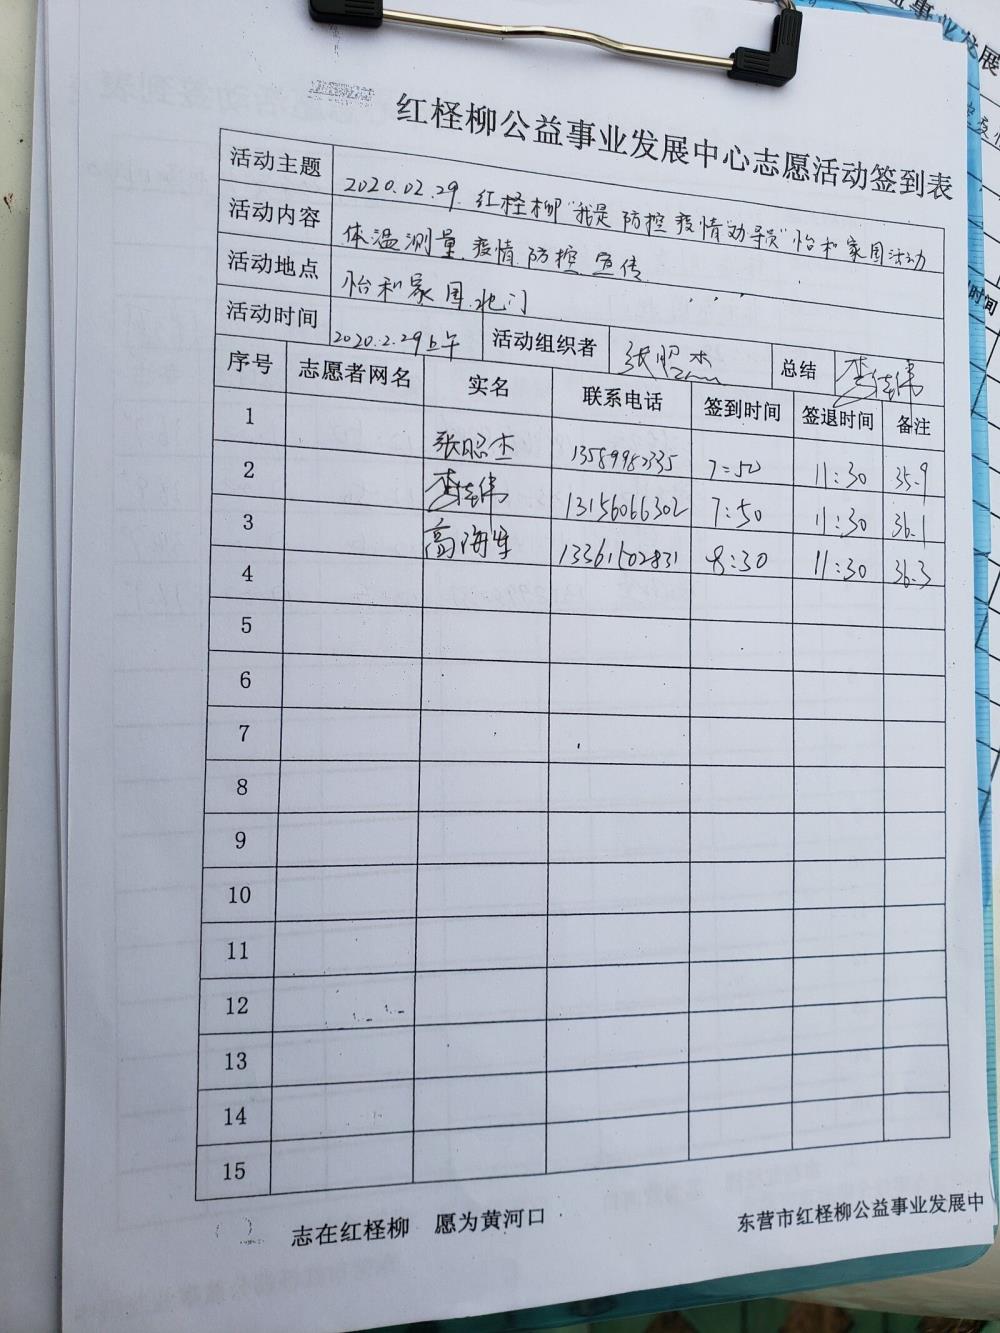 红柽柳公益事业发展中心志愿活动签到表
活动主题 2020.02.29. 红柽柳"我是防控疫情劝导员"怡和家园活动
活动内容 体温测量 疫情防控宣传
活动地点 怡和家园.北门
活动时间 2020.2.29上午 活动组织者 张照杰 总结 李佳伟
序号 志愿者网名 实名 联系电话 签到时间 签退时间 备注
1 张照杰 7:50 11:30 35.9
2 李佳伟 13156066302 7:50 11:30 36.1
3 高海生 13361502831 8:30 11:30 36.3
4
5
6
7
8
9
10
11
12
13
14
15
志在红柽柳 愿为黄河口
东营市红柽柳公益事业发展中